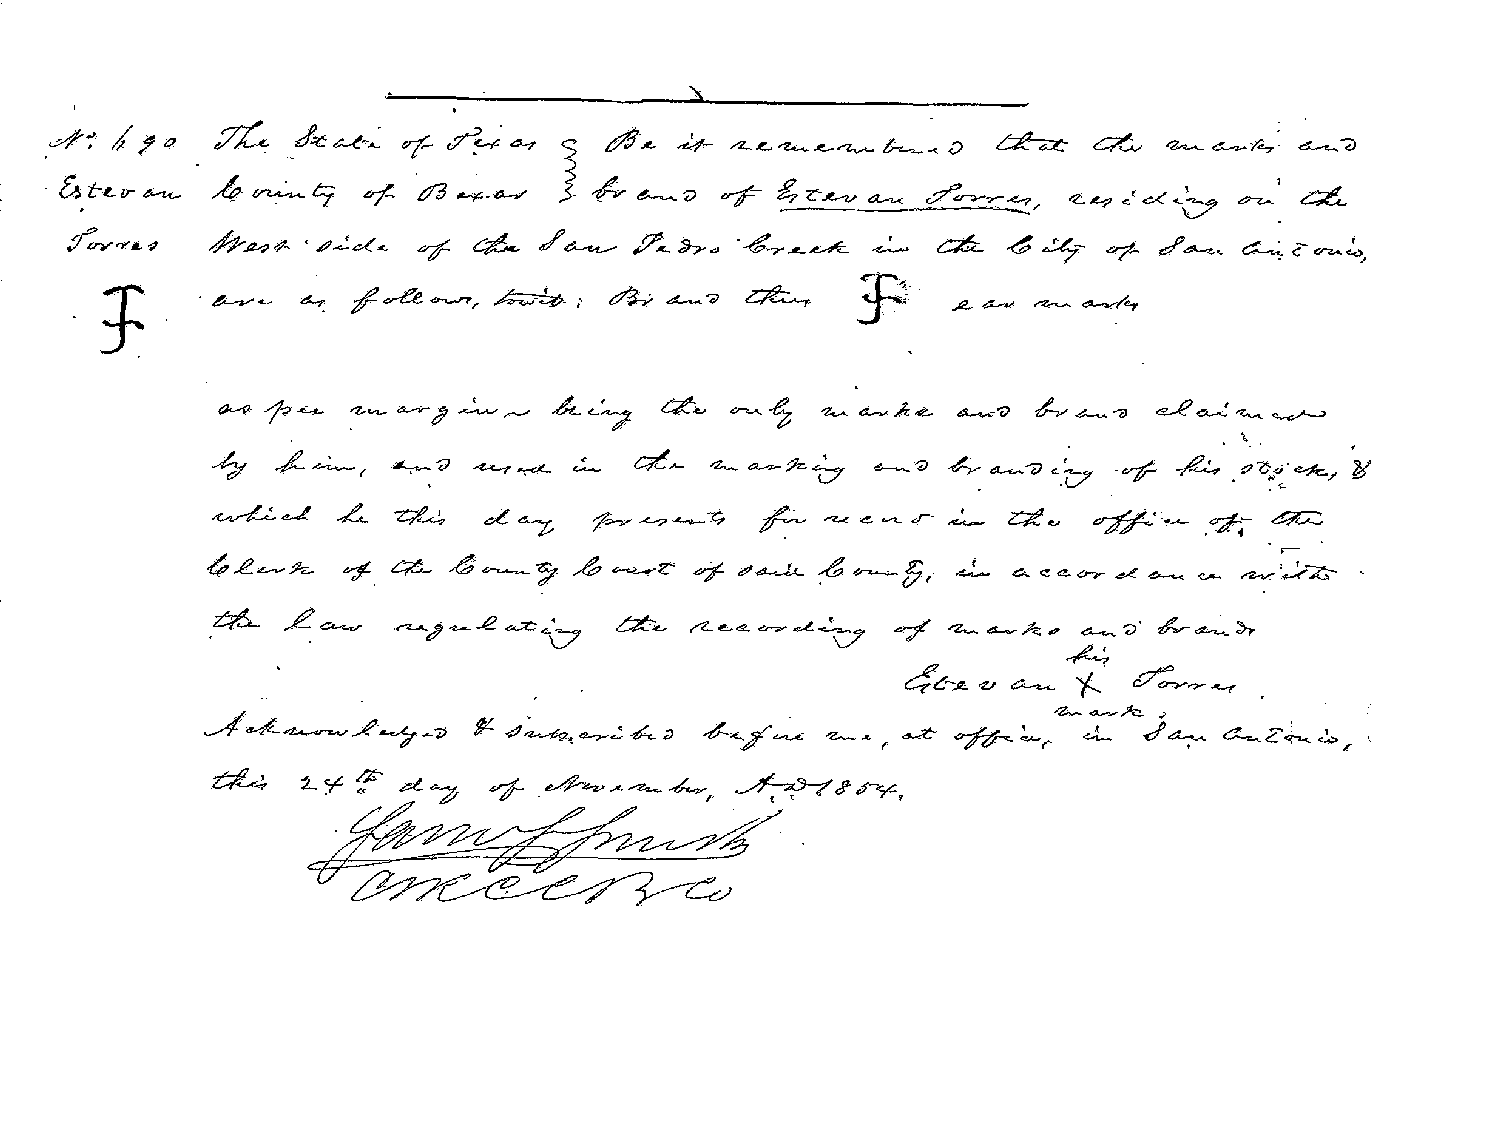 No. 690 The State of Texas } Be it remembered that the marks and
Estevan County of Bexar } brand of Estevan Torres, residing on the
Torres West side of the San Pedro Creek in the City of San Antonio,
are as follows, towit: Brand thus ear marks
as per margin being the only marks and brand claimed
by him, and used in the marking and branding of his stock, &
which he this day presents for record in the office of the
Clerk of the County Court of said County, in accordance with
the law regulating the recording of marks and brands
his
Estevan X Torres
mark
Acknowledged & subscribed before me, at office, in San Antonio,
this 24th day of November, A.D. 1854.
Sam S Smith
CCCBCo